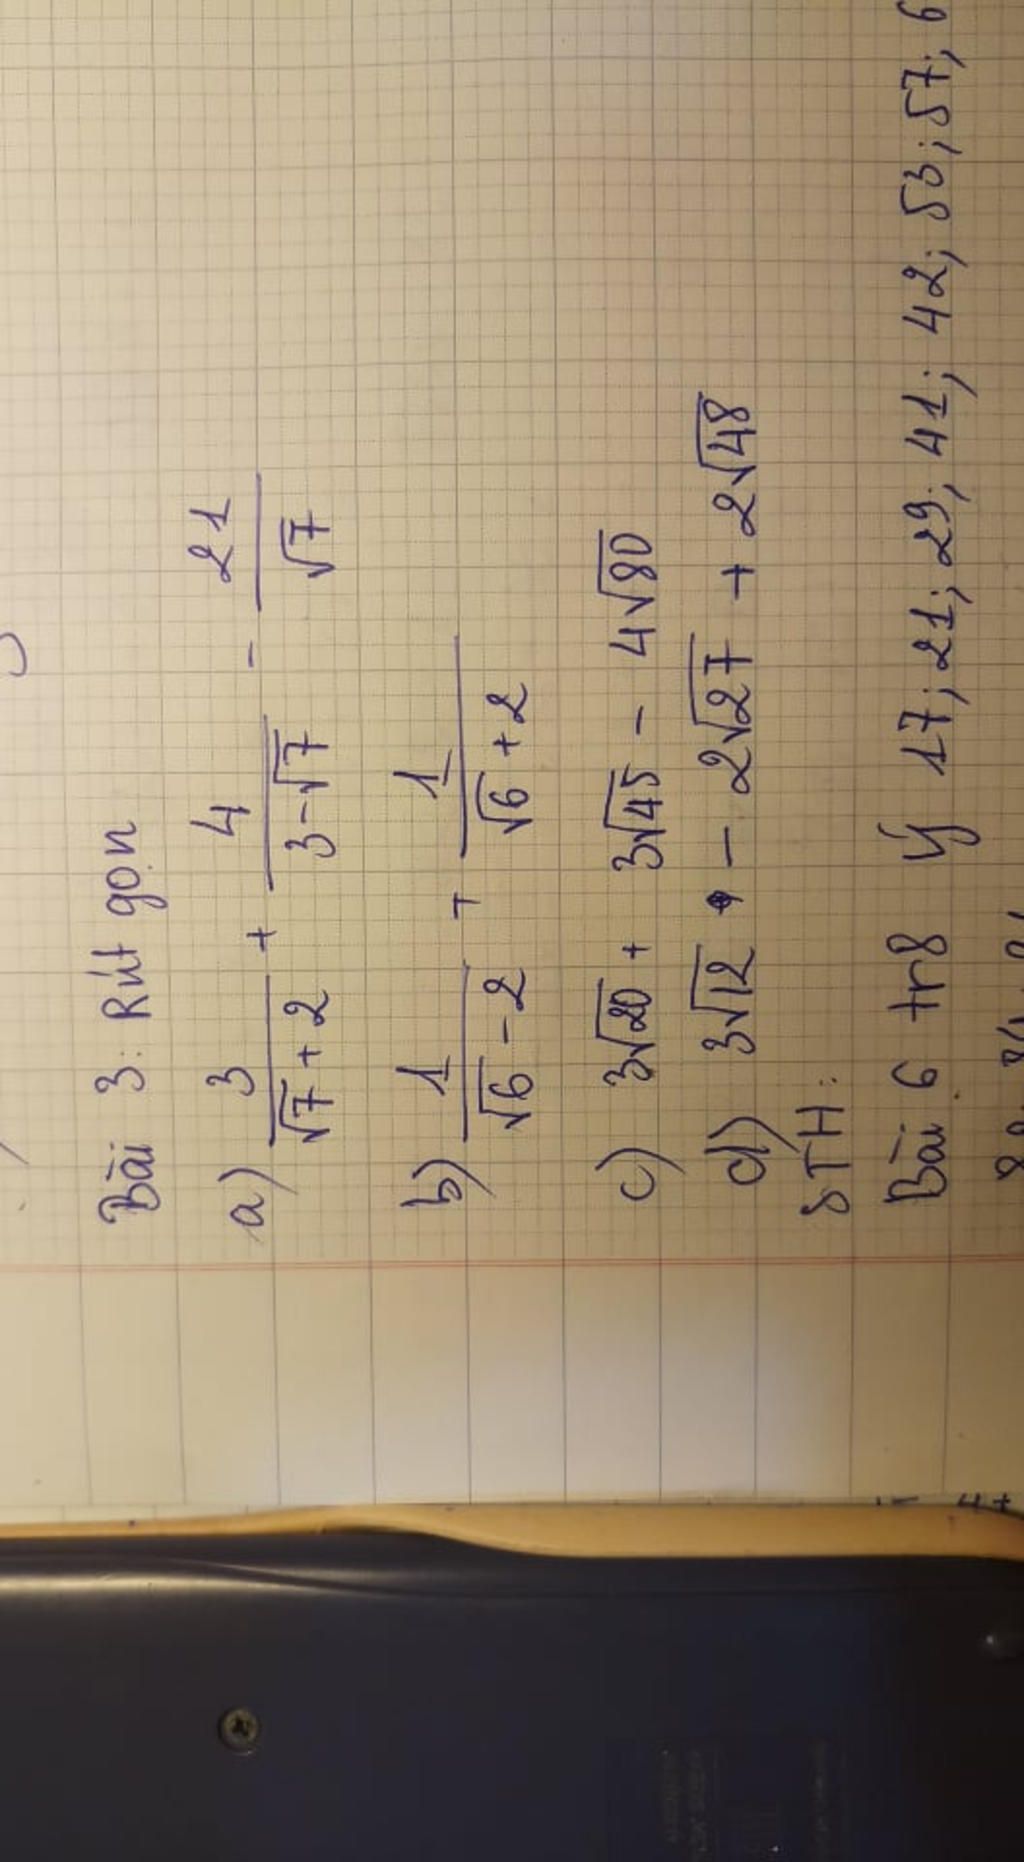 Bài 3: Rút gọn
a) 3/(√7 + 2) + 4/(3 - √7) - 21/√7
b) 1/(√6 - 2) + 1/(√6 + 2)
c) 3√20 + 3√45 - 4√80
d) 3√12 - 2√27 + 2√48
STH:
Bài 6 tr8 Ý 17; 21; 29; 41; 42; 53; 57; 6